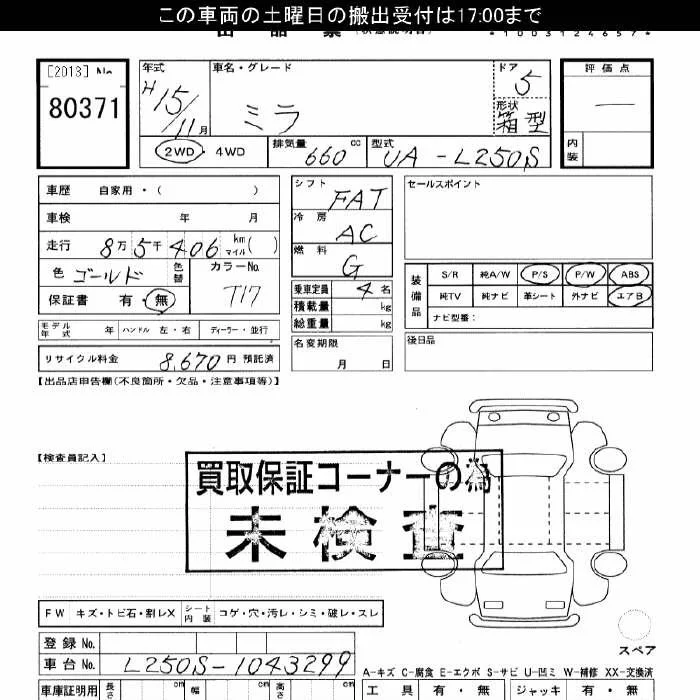 この車両の土曜日の搬出受付は17:00まで
*1003124657*
[2013] No
80371
年式
H15/11月
車名・グレード
ミラ
ドア
5
形状
箱型
評価点
―
内装
2WD・4WD
排気量
660 cc
型式
UA-L250S
車歴 自家用・( )
車検 年 月
走行 8万5千406 km マイル( )
色 ゴールド 色替
カラーNo.
T17
保証書 有・無
モデル年式 年 ハンドル 左・右 ディーラー・並行
リサイクル料金 8,670 円 預託済
シフト
FAT
冷房
AC
燃料
G
乗車定員 4 名
積載量 kg
総重量 kg
名変期限
月 日
セールスポイント
装備品
S/R 純A/W P/S P/W ABS
純TV 純ナビ 革シート 外ナビ エアB
ナビ型番:
後日品
【出品店申告欄(不良箇所・欠品・注意事項等)】
【検査員記入】
買取保証コーナーの為
未検査
FW キズ・トビ石・割レX シート内装 コゲ・穴・汚レ・シミ・破レ・スレ
スペア
登録 No.
車台 No. L250S-1043299
A-キズ C-腐食 E-エクボ S-サビ U-凹ミ W-補修 XX-交換済
車庫証明用 長さ cm 幅 cm 高さ cm
工具 有・無 ジャッキ 有・無